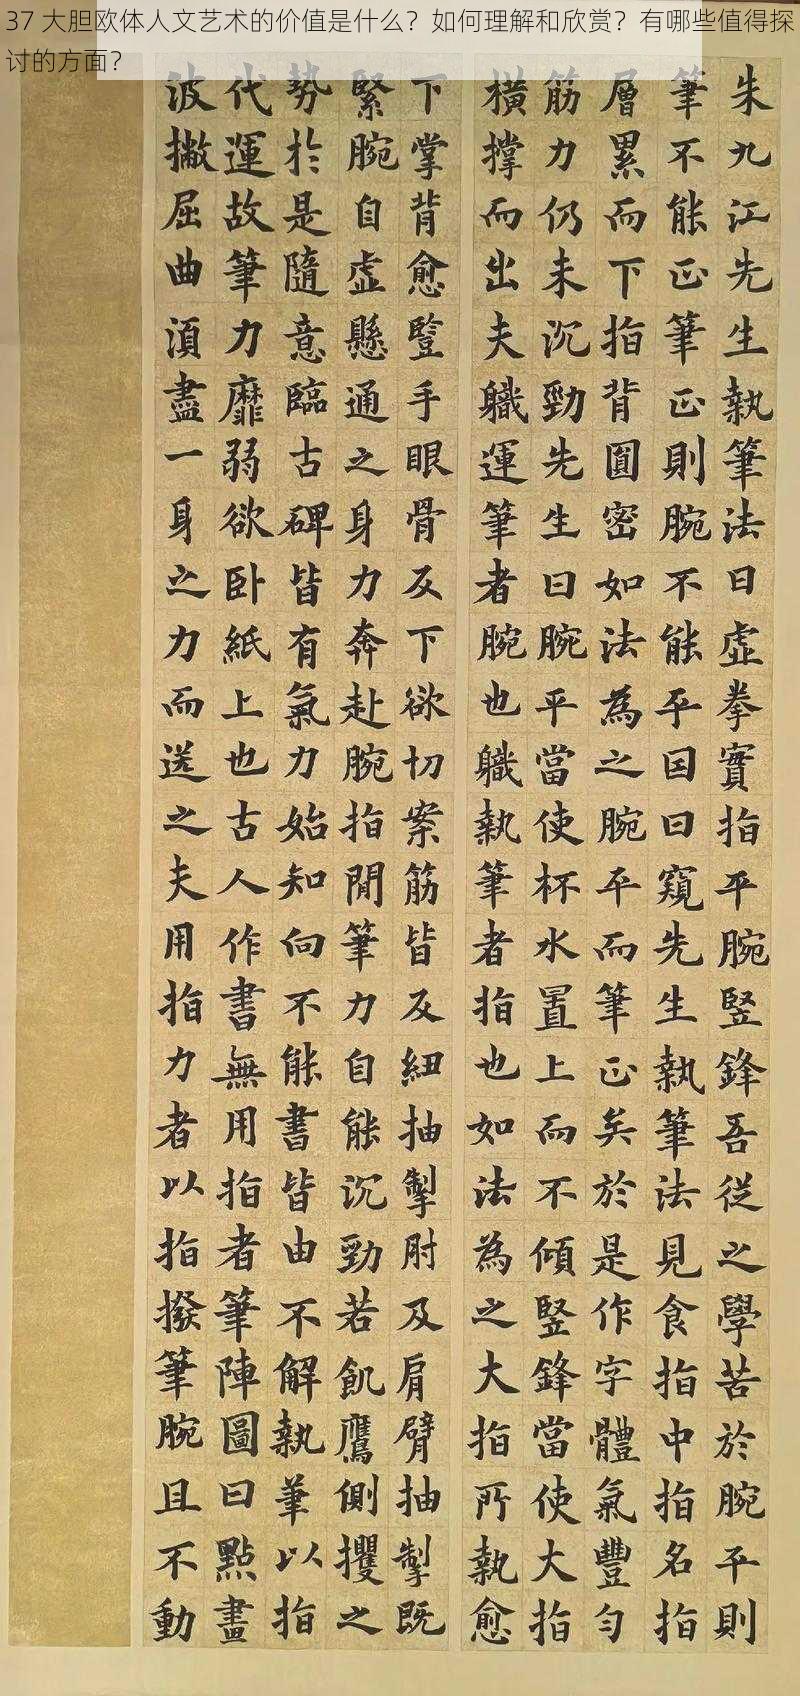 37 大胆欧体人文艺术的价值是什么？如何理解和欣赏？有哪些值得探
讨的方面？
朱九江先生執筆法曰虛拳實指平腕竪鋒吾從之學苦於腕平則
筆不能正筆正則腕不能平因曰窺先生執筆法見食指中指名指
層累而下指背圓密如法為之腕平而筆正矣於是作字體氣豐勻
筋力仍未沉勁先生曰腕平當使杯水置上而不傾竪鋒當使大指
橫撑而出夫職運筆者腕也職執筆者指也如法為之大指所執愈
下掌背愈豎手眼骨反下欲切案筋皆反紐抽掣肘及肩臂抽掣既
緊腕自虛懸通之身力奔赴腕指閒筆力自能沉勁若飢鷹側攫之
勢於是隨意臨古碑皆有氣力始知向不能書皆由不解執筆以指
代運故筆力靡弱欲卧紙上也古人作書無用指者筆陣圖曰點畫
波撇屈曲須盡一身之力而送之夫用指力者以指撥筆腕且不動